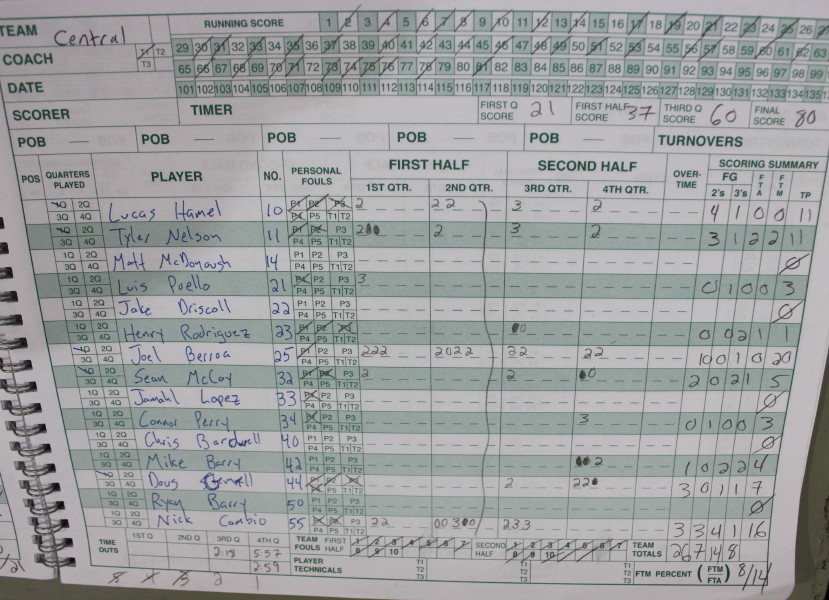 TEAM Central RUNNING SCORE 1 2 3 4 5 6 7 8 9 10 11 12 13 14 15 16 17 18 19 20 21 22 23 24 25 26
COACH T1 T2 T3 29 30 31 32 33 34 35 36 37 38 39 40 41 42 43 44 45 46 47 48 49 50 51 52 53 54 55 56 57 58 59 60 61 62 63
65 66 67 68 69 70 71 72 73 74 75 76 77 78 79 80 81 82 83 84 85 86 87 88 89 90 91 92 93 94 95 96 97 98 99
DATE 101 102 103 104 105 106 107 108 109 110 111 112 113 114 115 116 117 118 119 120 121 122 123 124 125 126 127 128 129 130 131 132 133 134 135
SCORER TIMER FIRST Q SCORE 21 FIRST HALF SCORE 37 THIRD Q SCORE 60 FINAL SCORE 80
POB POB POB POB POB TURNOVERS
POS QUARTERS PLAYED PLAYER NO. PERSONAL FOULS FIRST HALF 1ST QTR. 2ND QTR. SECOND HALF 3RD QTR. 4TH QTR. OVER-TIME SCORING SUMMARY FG 2's 3's FTA FTM TP
1Q 2Q 3Q 4Q Lucas Hamel 10 P1 P2 P3 P4 P5 T1 T2 2 22 3 2 4 1 0 0 11
1Q 2Q 3Q 4Q Tyler Nelson 11 P1 P2 P3 P4 P5 T1 T2 2 2 3 2 3 1 2 2 11
1Q 2Q 3Q 4Q Matt McDonough 14 P1 P2 P3 P4 P5 T1 T2 0
1Q 2Q 3Q 4Q Luis Puello 21 P1 P2 P3 P4 P5 T1 T2 3 0 1 0 0 3
1Q 2Q 3Q 4Q Jake Driscoll 22 P1 P2 P3 P4 P5 T1 T2 0
1Q 2Q 3Q 4Q Henry Rodriguez 23 P1 P2 P3 P4 P5 T1 T2 0 0 0 2 1 1
1Q 2Q 3Q 4Q Joel Berroa 25 P1 P2 P3 P4 P5 T1 T2 222 2022 22 22 10 0 1 0 20
1Q 2Q 3Q 4Q Sean McCoy 32 P1 P2 P3 P4 P5 T1 T2 2 2 0 2 0 2 1 5
1Q 2Q 3Q 4Q Jamahl Lopez 33 P1 P2 P3 P4 P5 T1 T2 0
1Q 2Q 3Q 4Q Connor Perry 34 P1 P2 P3 P4 P5 T1 T2 3 0 1 0 0 3
1Q 2Q 3Q 4Q Chris Bardwell 40 P1 P2 P3 P4 P5 T1 T2 0
1Q 2Q 3Q 4Q Mike Barry 42 P1 P2 P3 P4 P5 T1 T2 2 1 0 2 2 4
1Q 2Q 3Q 4Q Doug 44 P1 P2 P3 P4 P5 T1 T2 2 22 3 0 1 1 7
1Q 2Q 3Q 4Q Ryan Barry 50 P1 P2 P3 P4 P5 T1 T2 0
1Q 2Q 3Q 4Q Nick Cambio 55 P1 P2 P3 P4 P5 T1 T2 22 003 0 233 3 3 4 1 16
TIME OUTS 1ST Q 2ND Q 3RD Q 4TH Q TEAM FOULS FIRST HALF 1 2 3 4 5 6 7 8 9 10 SECOND HALF 1 2 3 4 5 6 7 8 9 10 TEAM TOTALS 26 7 14 8
2:18 5:57
2:59 PLAYER TECHNICALS T1 T2 T3 T1 T2 T3 T1 T2 T3 FTM PERCENT (FTM/FTA) 8/14